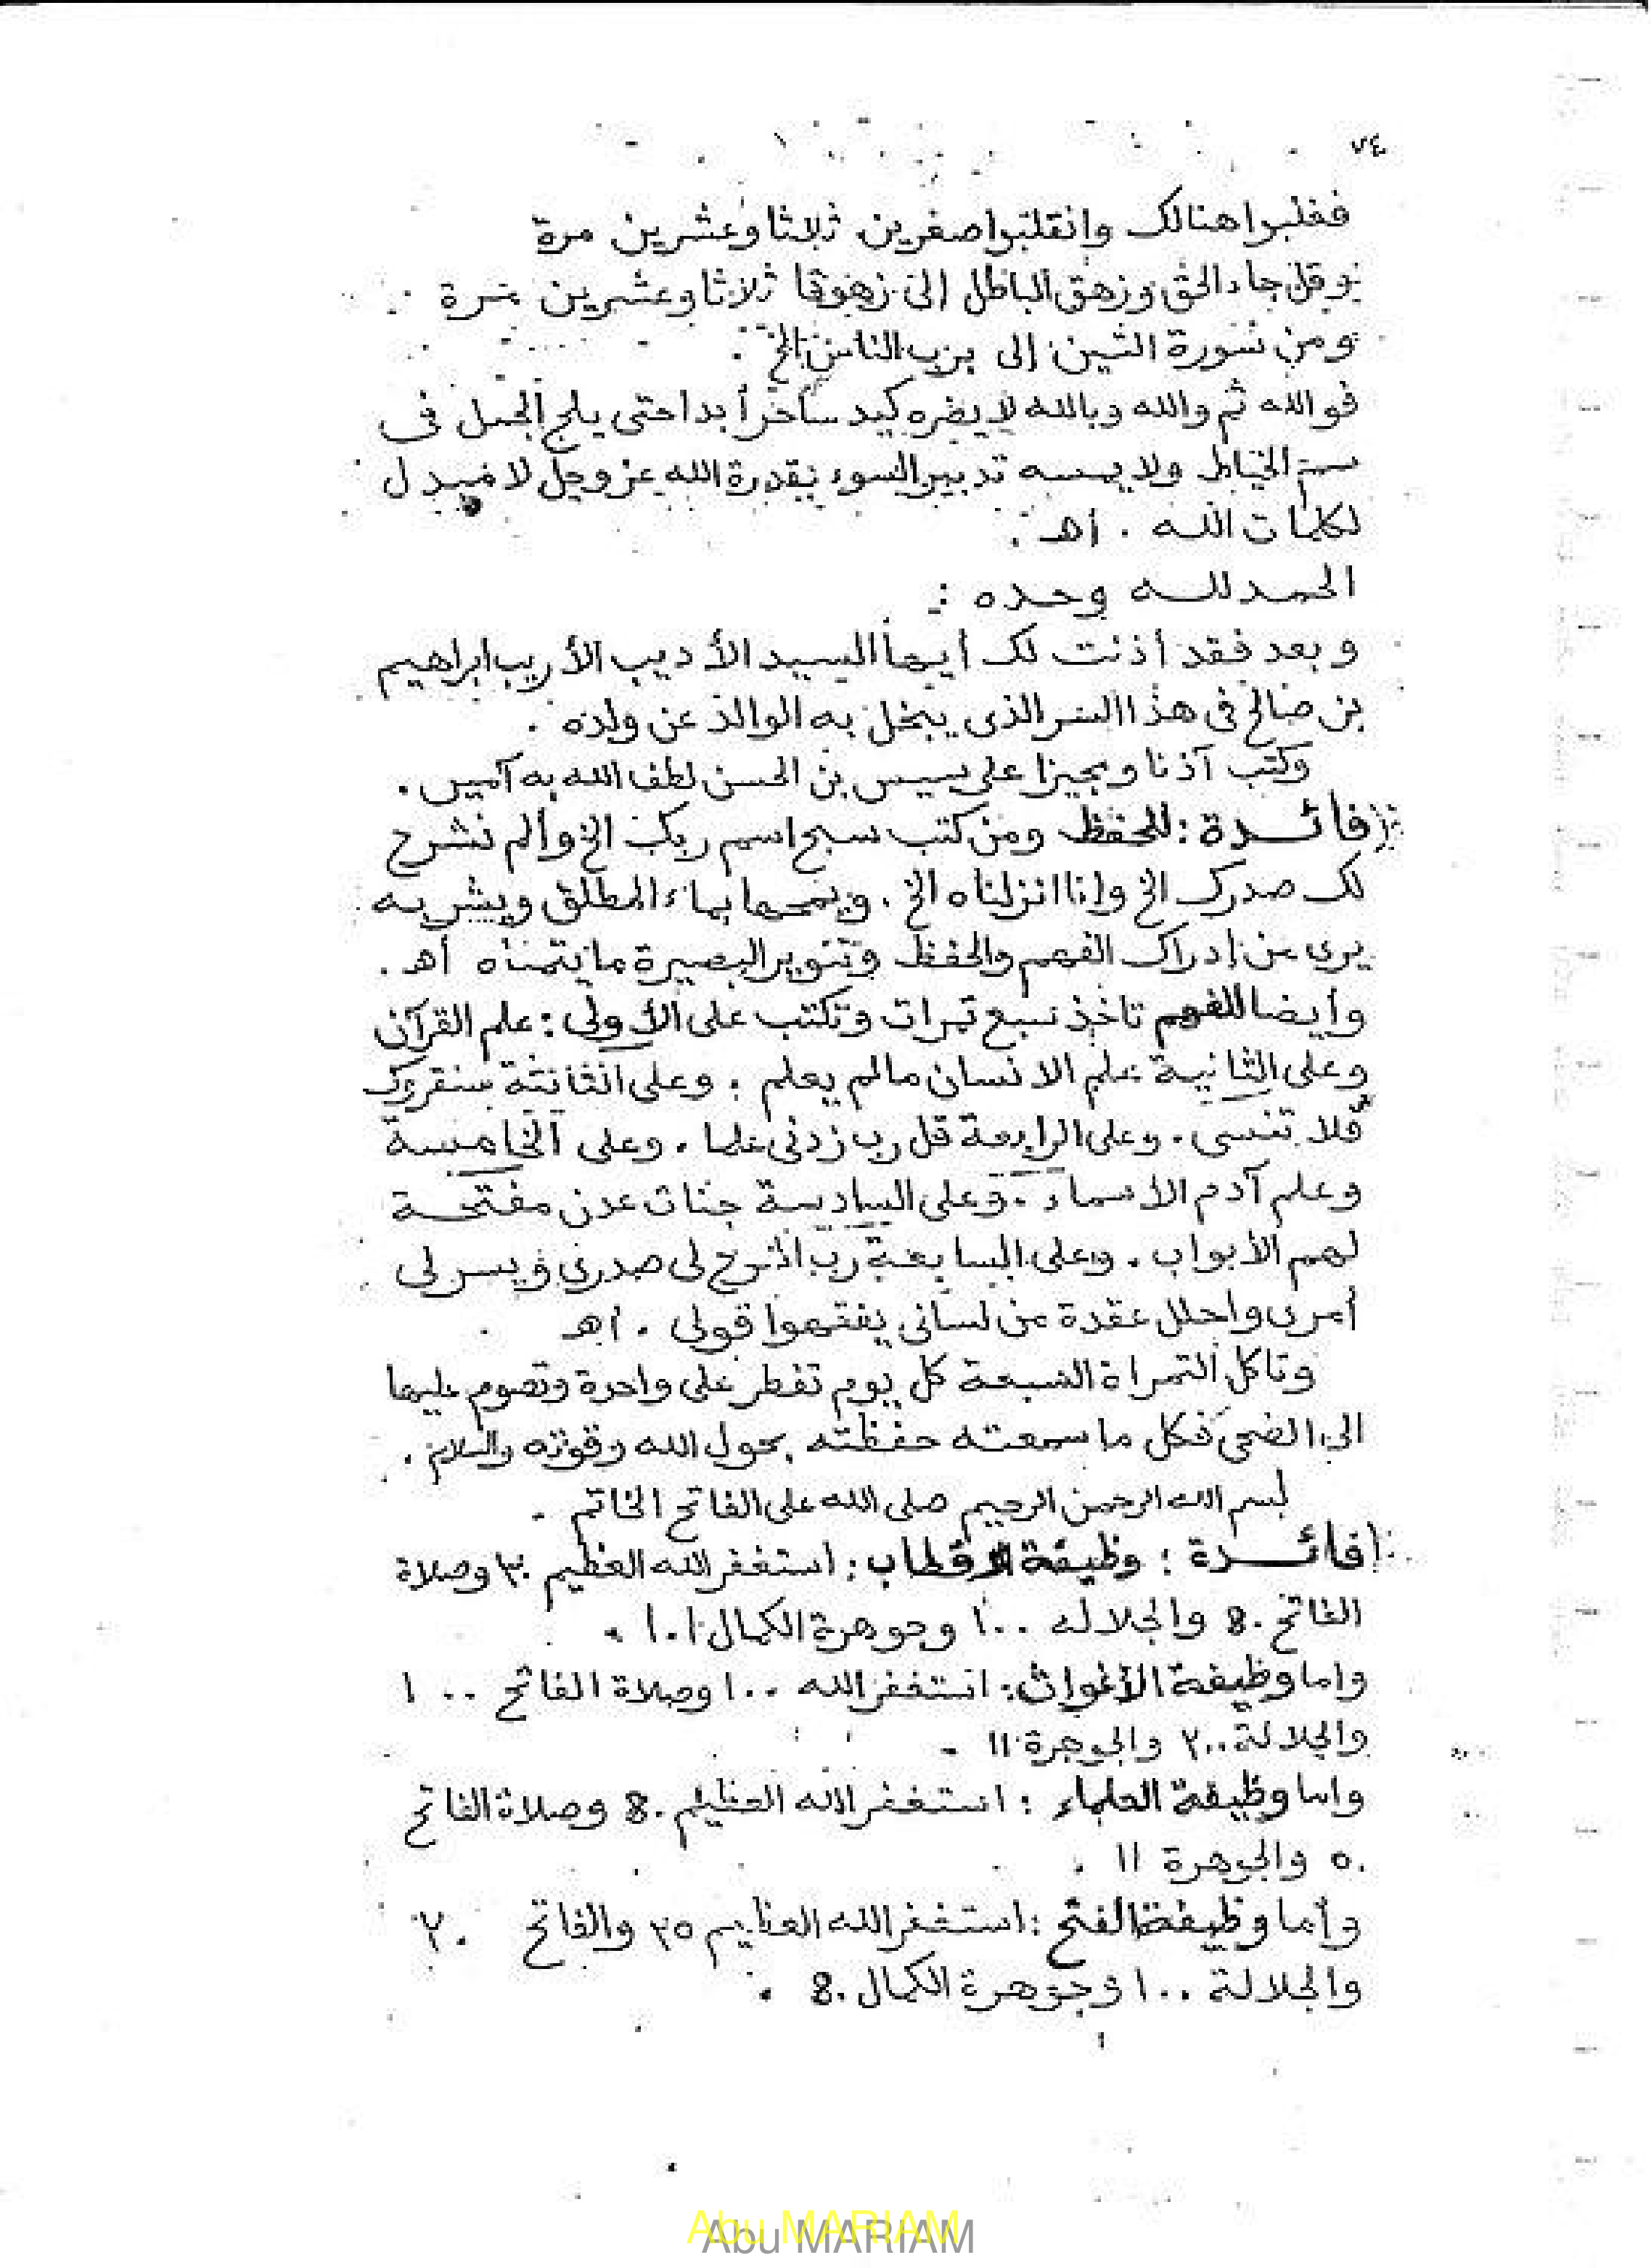 ٧٤
فغلبوا هنالك وانقلبوا صغرين ثلاثا وعشرين مرة
وقل جاء الحق وزهق الباطل إلى زهوقا ثلاثا وعشرين مرة
ومن سورة التين إلى برب الناس الخ .
فوالله ثم والله وبالله لا يضره كيد ساحر أبدا حتى يلج الجمل فى
سم الخياط ولا يمسه تدبير السوء بقدرة الله عز وجل لا مبدل
لكلمات الله . اهـ .
الحمد لله وحده :
وبعد فقد أذنت لك أيها السيد الأديب الأريب ابراهيم
بن صالح فى هذا السر الذى يبخل به الوالد عن ولده .
وكتب آذنا ومجيزا على سيس بن الحسن لطف الله به آمين .
فائدة : للحفظ ومن كتب سبح اسم ربك الخ وألم نشرح
لك صدرك الخ وإنا انزلناه الخ . ويمحها بماء المطلق ويشربه
يرى من إدراك الفهم والحفظ وتنوير البصيرة ما يتمناه اهـ .
وأيضا للفهم تاخذ سبع تمرات وتكتب على الأولى : علم القرآن
وعلى الثانية علم الانسان مالم يعلم . وعلى الثالثة سنقرؤك
فلا تنسى . وعلى الرابعة قل رب زدنى علما . وعلى الخامسة
وعلم آدم الاسماء . وعلى السادسة جنات عدن مفتحة
لهم الأبواب . وعلى السابعة رب اشرح لى صدرى ويسر لى
أمرى واحلل عقدة من لسانى يفقهوا قولى . اهـ
وتاكل التمراة السبعة كل يوم تفطر على واحدة وتصوم عليها
الى الضحى فكل ما سمعته حفظته بحول الله وقوته والسلام .
بسم الله الرحمن الرحيم صلى الله على الفاتح الخاتم .
فائدة : وظيفة الاقطاب : استغفر الله العظيم ٣٠ وصلاة
الفاتح ٥٠ والجلاله ١٠٠ وجوهرة الكمال ١٠١ .
واما وظيفة الأغواث : استغفر الله ١٠٠ وصلاة الفاتح ١٠٠
والجلالة ٢٠٠ والجوهرة ١١ .
واما وظيفة العلماء : استغفر الله العظيم ٥٠ وصلاة الفاتح
٥٠ والجوهرة ١١ .
وأما وظيفة الفتح : استغفر الله العظيم ٢٥ والفاتح ٢٠
والجلالة ١٠٠ وجوهرة الكمال ٥٠ .
Abu MARIAM